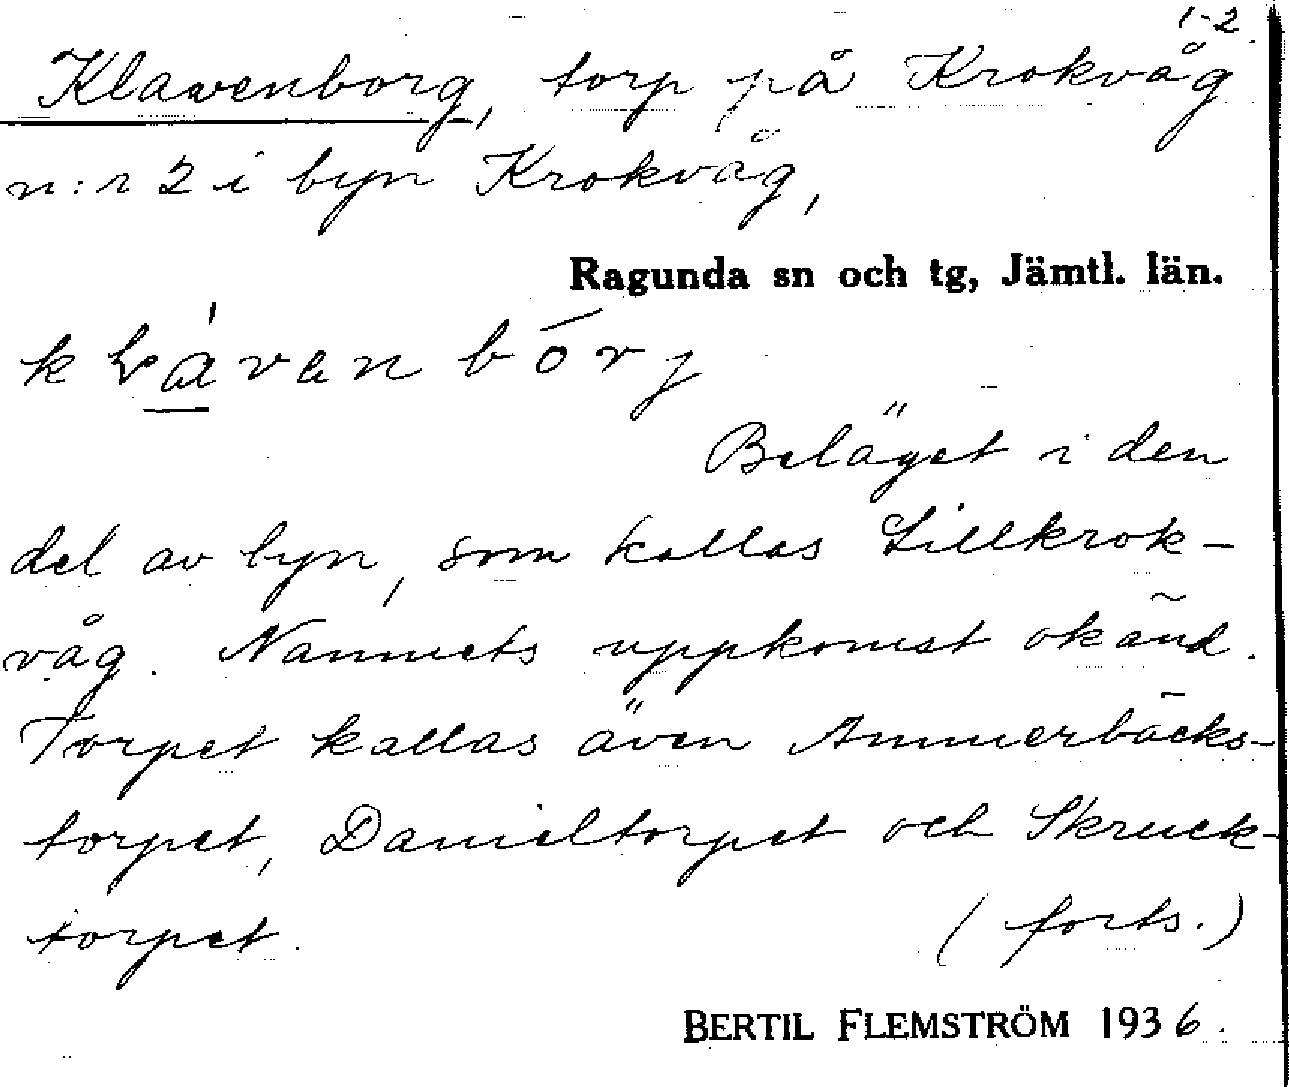 1-2.
Klavenborg, torp på Krokvåg
n:r 2 i byn Krokvåg,
Ragunda sn och tg, Jämtl. län.
Beläget i den
del av byn, som kallas Lillkrok-
våg. Namnets uppkomst okänd.
Torpet kallas även Ammerbäcks-
torpet, Danieltorpet och Skruck-
torpet.
(forts.)
BERTIL FLEMSTRÖM 1936.